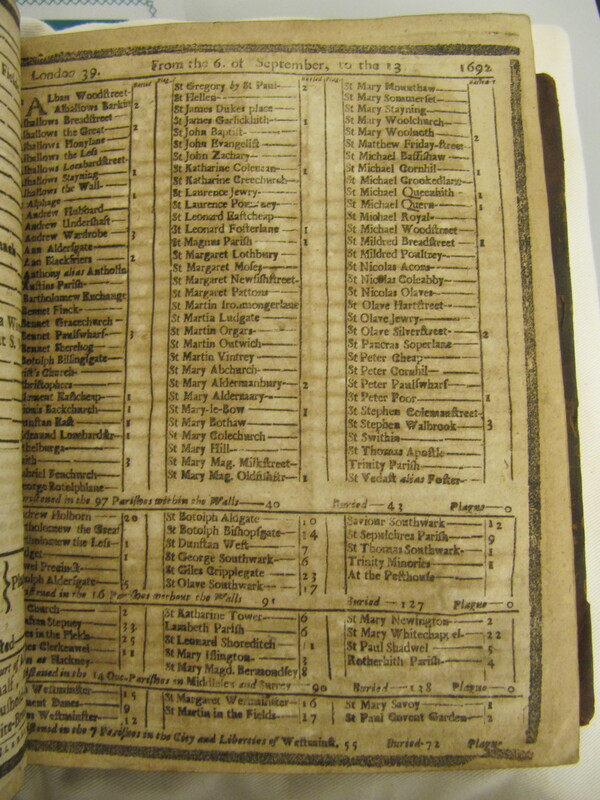 London 39. From the 6. of September, to the 13. 1692
Alban Woodstreet
Alhallows Barkin 2
Alhallows Breadstreet
Alhallows the Great 2
Alhallows Honylane
Alhallows the Less
Alhallows Lombardstreet
Alhallows Stayning 1
Alhallows the Wall
Alphage 1
Andrew Hubbard
Andrew Undershaft
Andrew Wardrobe 3
Ann Aldersgate
Ann Blackfriers 2
Anthony alias Antholin
Austins Parish
Bartholomew Exchange
Bennet Finck
Bennet Gracechurch
Bennet Paulswharf 3
Bennet Sherehog
Botolph Billingsgate
rist's Church
hristophers
lement Eastcheap 1
ionis Backchurch 1
unstan East 8
dmund Lombardstr 1
thelburga
aith 3
abriel Fenchurch
eorge Botolphlane
St Gregory by St Paul 2
St Hellen
St James Dukes place
St James Garlickhith 1
St John Baptist
St John Evangelist
St John Zachary
St Katharine Coleman 1
St Katharine Creechurch
St Laurence Jewry
St Laurence
St Leonard Eastcheap
St Leonard Fosterlane 1
St Magnus Parish 1
St Margaret Lothbury
St Margaret Moses
St Margaret Newfishstreet
St Margaret Pattons
St Martin Ironmongerlane
St Martin Ludgate
St Martin Orgars
St Martin Outwich
St Martin Vintrey
St Mary Abchurch
St Mary Aldermanbury 2
St Mary Aldermary
St Mary-le-Bow 1
St Mary Bothaw
St Mary Colechurch
St Mary Hill
St Mary Mag. Milkstreet
St Mary Mag. Oldfishstr 1
St Mary Mounthaw
St Mary Sommerset
St Mary Stayning
St Mary Woolchurch
St Mary Woolnoth 2
St Matthew Friday-street
St Michael Bassishaw
St Michael Cornhil 1
St Michael Crookedlane
St Michael Queenhith 1
St Michael Quern 1
St Michael Royal
St Michael Woodstreet
St Mildred Breadstreet 1
St Mildred Poultney
St Nicolas Acons
St Nicolas Coleabby
St Nicolas Olaves
St Olave Hartstreet
St Olave Jewry
St Olave Silverstreet 2
St Pancras Soperlane
St Peter Cheap
St Peter Cornhil
St Peter Paulswharf
St Peter Poor 1
St Stephen Colemanstreet
St Stephen Walbrook 3
St Swithin
St Thomas Apostle
Trinity Parish
St Vedast alias Foster
ristened in the 97 Parishes within the Walls 40 Buried 43 Plague 0
drew Holborn 20
tholomew the Great
tholomew the Less 1
1
wel Precinct
olph Aldersgate 5
St Botolph Aldgate 10
St Botolph Bishopsgate 14
St Dunstan West 7
St George Southwark 6
St Giles Cripplegate 23
St Olave Southwark 17
Saviour Southwark 12
St Sepulchres Parish 9
St Thomas Southwark 1
Trinity Minories 1
At the Pesthouse
istened in the 16 Parishes without the Walls 91 Buried 127 Plague 0
Church 2
Stepney 33
es in the Fields 25
es Clerkenwel 11
n at Hackney
St Katharine Tower 6
Lambeth Parish 6
St Leonard Shoreditch 11
St Mary Islington 3
St Mary Magd. Bermondsey 8
St Mary Newington 2
St Mary Whitechappel 22
St Paul Shadwel 5
Rotherhith Parish 4
istened in the 14 Out-Parishes in Middlesex and Surrey 90 Buried 128 Plague 0
Westminster 15
ment Danes 9
es Westminster 12
St Margaret Westminster 16
St Martin in the Fields 17
St Mary Savoy 1
St Paul Covent Garden 2
istened in the 7 Parishes in the City and Liberties of Westminst. 55 Buried 72 Plague